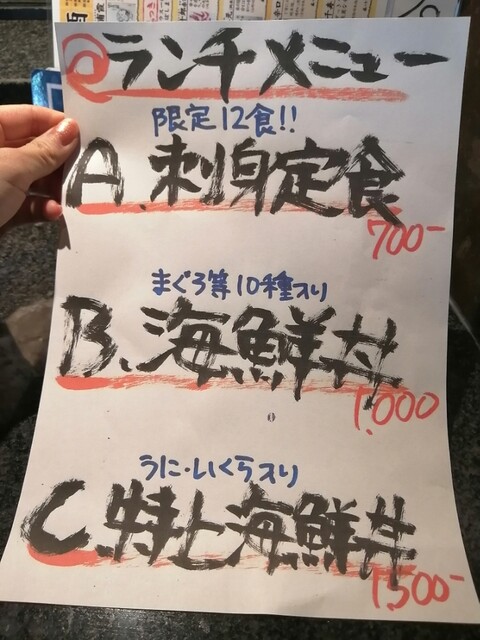 @ランチメニュー
限定12食!!
A.刺身定食
700-
まぐろ等10種入り
B.海鮮丼
1,000
うに・いくら入り
C.特上海鮮丼
1,500-